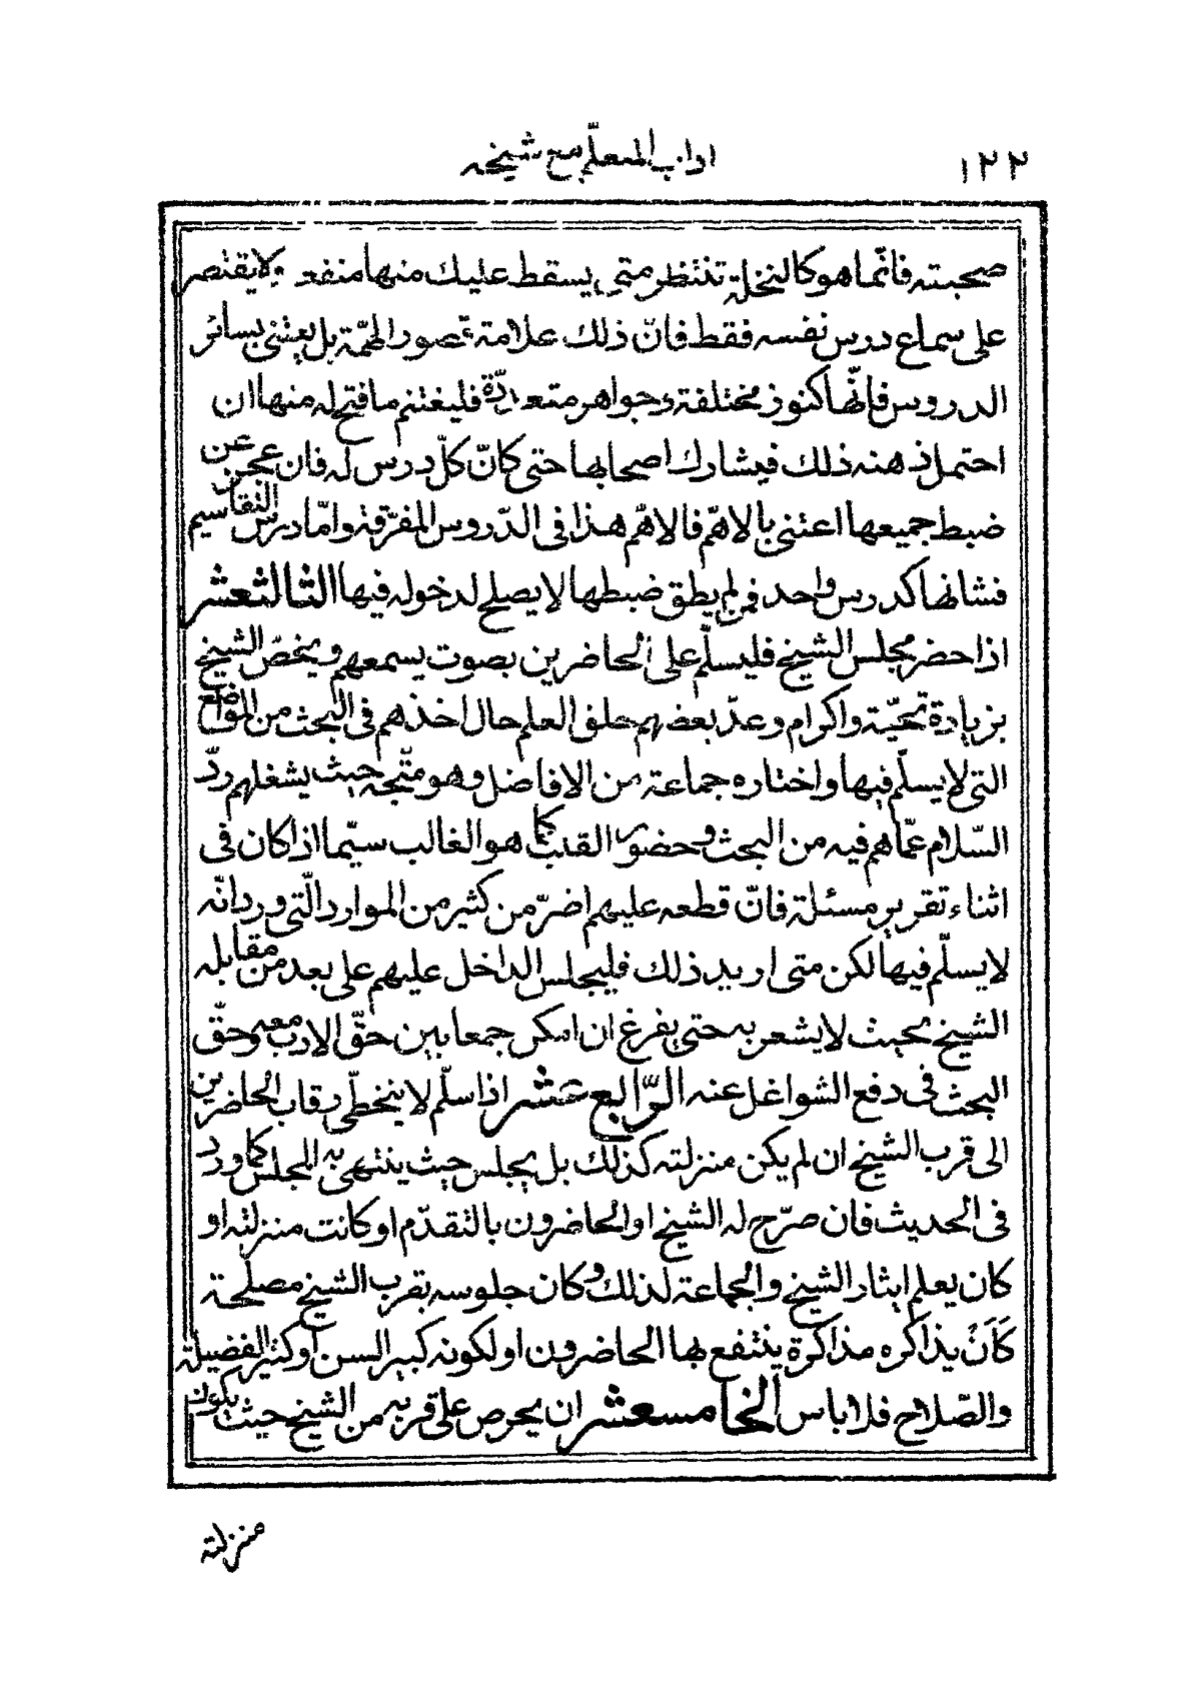 ١٢٢
اداب المتعلّم مع شيخه
صحبته فانّما هو كالنخلة تنتظر متى يسقط عليك منها منفعة ولا يقتصر
على سماع درس نفسه فقط فانّ ذلك علامة قصور الهمّة بل يعتنى بسائر
الدروس فانّها كنوز مختلفة وجواهر متعدّدة فليغتنم ما فتح له منها ان
احتمل ذهنه ذلك فيشارك اصحابها حتى كانّ كلّ درس له فان عجز عن
ضبط جميعها اعتنى بالاهّم فالاهّم هذا فى الدّروس المفرّقة وامّا درس التقاسيم
فشانها كدرس واحد فمن لم يطق ضبطها لا يصلح لدخوله فيها الثالث عشر
اذا حضر مجلس الشيخ فليسلّم على الحاضرين بصوت يسمعهم ويخصّ الشيخ
بزيادة تحيّة واكرام وعدّ بعضهم حلق العلم حال اخذهم فى البحث من المواضع
التى لا يسلّم فيها واختاره جماعة من الافاضل وهو متّجه حيث يشغلهم ردّ
السّلام عمّا هم فيه من البحث وحضور القلب كما هو الغالب سيّما اذا كان فى
اثناء تقرير مسئلة فانّ قطعه عليهم اضرّ من كثير من الموارد الّتى ورد انّه
لا يسلّم فيها لكن متى اريد ذلك فليجلس الداخل عليهم على بعد من مقابله
الشيخ بحيث لا يشعر به حتى يفرغ ان امكن جمعا بين حقّ الادب معه وحقّ
البحث فى دفع الشواغل عنه الرّابع عشر اذا سلّم لا يتخطّى رقاب الحاضرين
الى قرب الشيخ ان لم يكن منزلته كذلك بل يجلس حيث ينتهى به المجلس كما ورد
فى الحديث فان صرّح له الشيخ او الحاضرون بالتقدّم او كانت منزلته او
كان يعلم ايثار الشيخ والجماعة لذلك وكان جلوسه بقرب الشيخ مصلحة
كَاَنْ يذاكره مذاكرة ينتفع بها الحاضرون او لكونه كبير السن او كثير الفضيلة
والصّلاح فلا باس الخامس عشر ان يحرص على قربه من الشيخ حيث يكون
منزلته